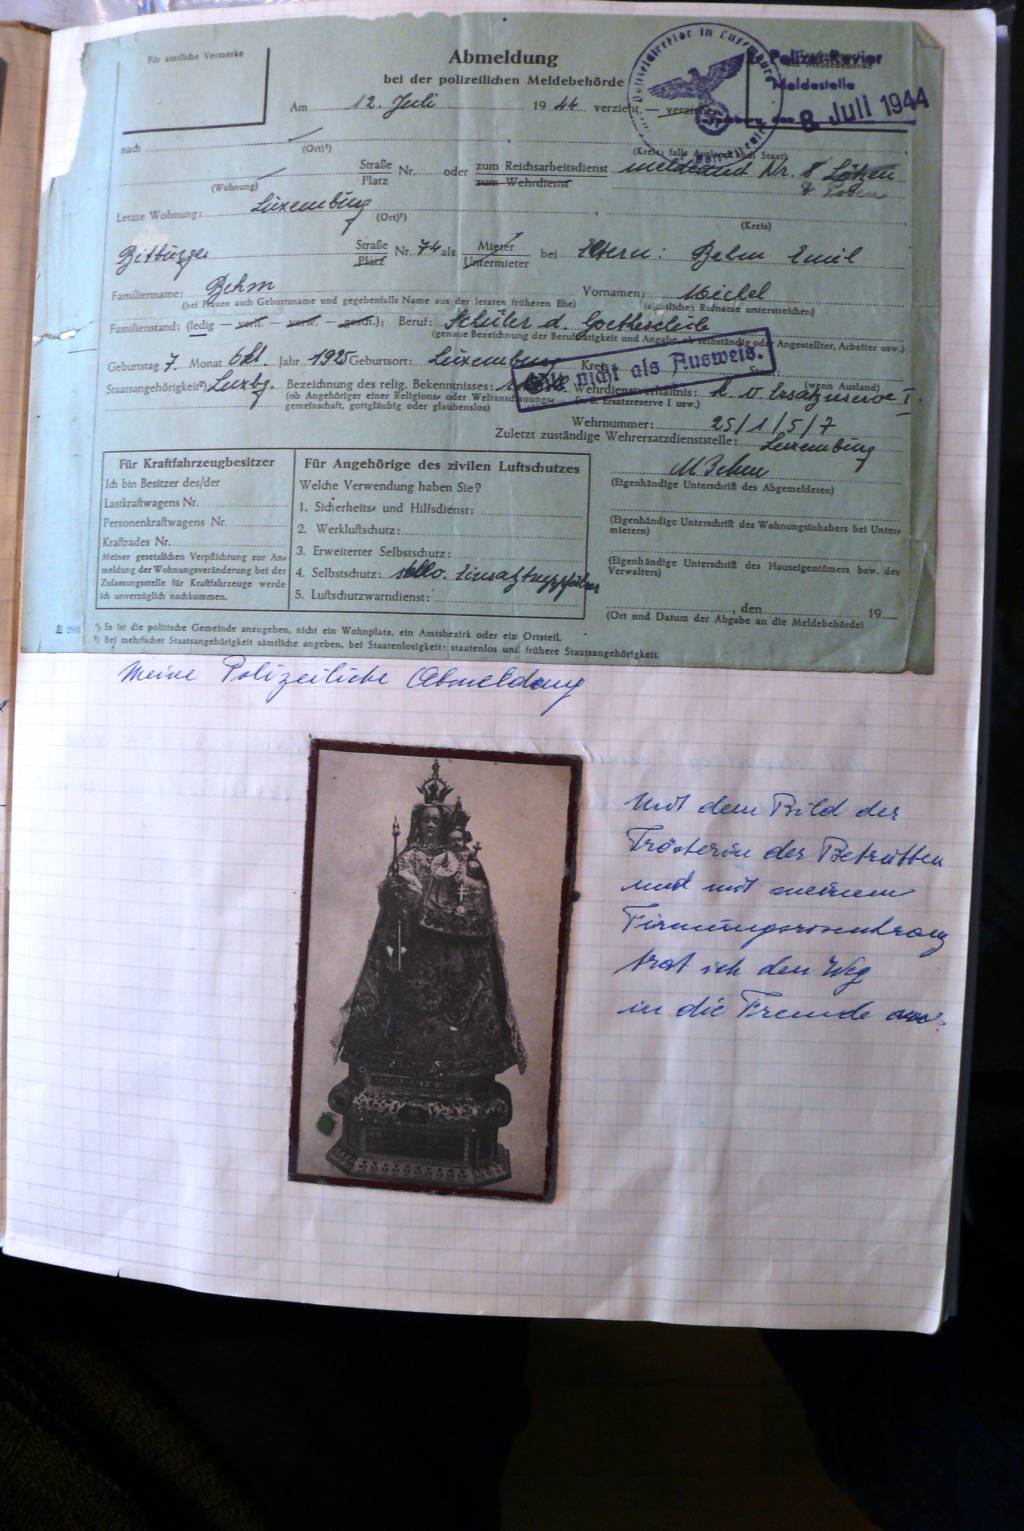 Für amtliche Vermerke
Abmeldung
bei der polizeilichen Meldebehörde
Polizeidirektor in Luxemburg
Polizei-Revier
Meldestelle
8 Juli 1944
Am 12. Juli 1944 verzieht — verzie
nach (Ort)¹) (Kreis; falls Ausland auch Staat)
(Wohnung) Straße Platz Nr. oder zum Reichsarbeitsdienst zum Wehrdienst Nr. 8 Lötzen
Letzte Wohnung: Luxemburg (Ort)¹) (Kreis)
Bitburger Straße Platz Nr. 74 als Mieter Untermieter bei Eltern: Behm Emil
Familienname: Behm Vornamen: Michel
(bei Frauen auch Geburtsname und gegebenfalls Name aus der letzten früheren Ehe) (sämtliche; Rufname unterstreichen)
Familienstand: (ledig — verh. — verw. — gesch.); Beruf: Schüler d. Goetheschule
(genaue Bezeichnung der Berufstätigkeit und Angabe, ob selbständig oder Angestellter, Arbeiter usw.)
Geburtstag 7. Monat Okt. Jahr 1925 Geburtsort: Luxemburg Kreis
(wenn Ausland)
nicht als Ausweis.
Staatsangehörigkeit²) Luxbg. Bezeichnung des relig. Bekenntnisses: Wehrdienstverhältnis: k. v. Ersatzreserve I
(ob Angehöriger einer Religions- oder Weltanschauungs-
gemeinschaft, gottgläubig oder glaubenslos)
Ersatzreserve I usw.)
Wehrnummer: 25/1/5/7
Zuletzt zuständige Wehrersatzdienststelle: Luxemburg
M. Behm
(Eigenhändige Unterschrift des Abgemeldeten)
(Eigenhändige Unterschrift des Wohnungsinhabers bei Unter-
mietern)
(Eigenhändige Unterschrift des Hauseigentümers bzw. des
Verwalters)
, den 19
(Ort und Datum der Abgabe an die Meldebehörde)
Für Kraftfahrzeugbesitzer
Ich bin Besitzer des/der
Lastkraftwagens Nr.
Personenkraftwagens Nr.
Kraftrades Nr.
Meiner gesetzlichen Verpflichtung zur An-
meldung der Wohnungsveränderung bei der
Zulassungsstelle für Kraftfahrzeuge werde
ich unverzüglich nachkommen.
Für Angehörige des zivilen Luftschutzes
Welche Verwendung haben Sie?
1. Sicherheits- und Hilfsdienst:
2. Werkluftschutz:
3. Erweiterter Selbstschutz:
4. Selbstschutz: stellv.
5. Luftschutzwarndienst:
¹) Es ist die politische Gemeinde anzugeben, nicht ein Wohnplatz, ein Amtsbezirk oder ein Ortsteil.
²) Bei mehrfacher Staatsangehörigkeit sämtliche angeben, bei Staatenlosigkeit: staatenlos und frühere Staatsangehörigkeit.
Meine Polizeiliche Abmeldung
Mit dem Bild der
Trösterin der Betrübten
und mit meinem
Firmungsrosenkranz
trat ich den Weg
in die Fremde an.